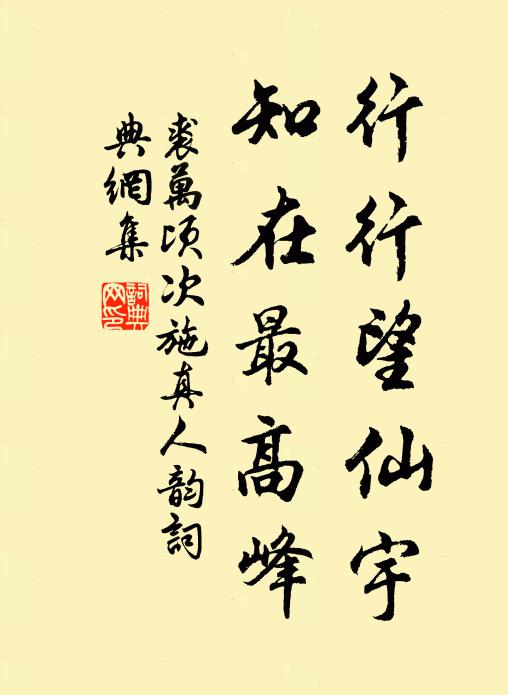 行行望仙宇
知在最高峰
裘萬頃次施真人韵詞
典網集
詞典網印